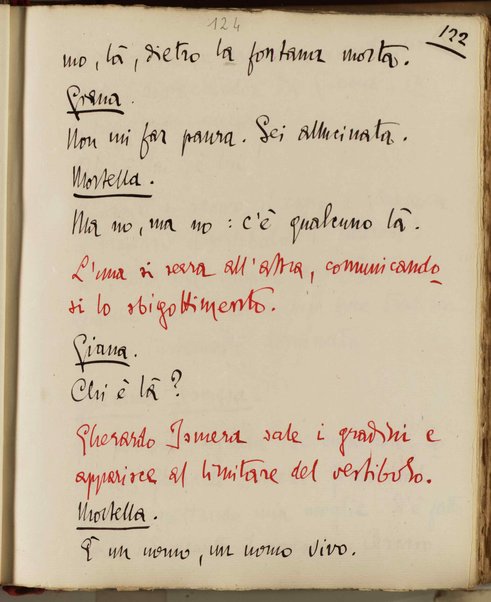 124
122
mo, là, dietro la fontana morta.
Giana.
Non mi far paura. Sei allucinata.
Mortella.
Ma no, ma no : c'è qualcuno là.
L'una si serra all'altra, comunicando
si lo sbigottimento.
Giana.
Chi è là ?
Gherardo Ismera sale i gradini e
apparisce al limitare del vestibolo.
Mortella.
È un uomo, un uomo vivo.